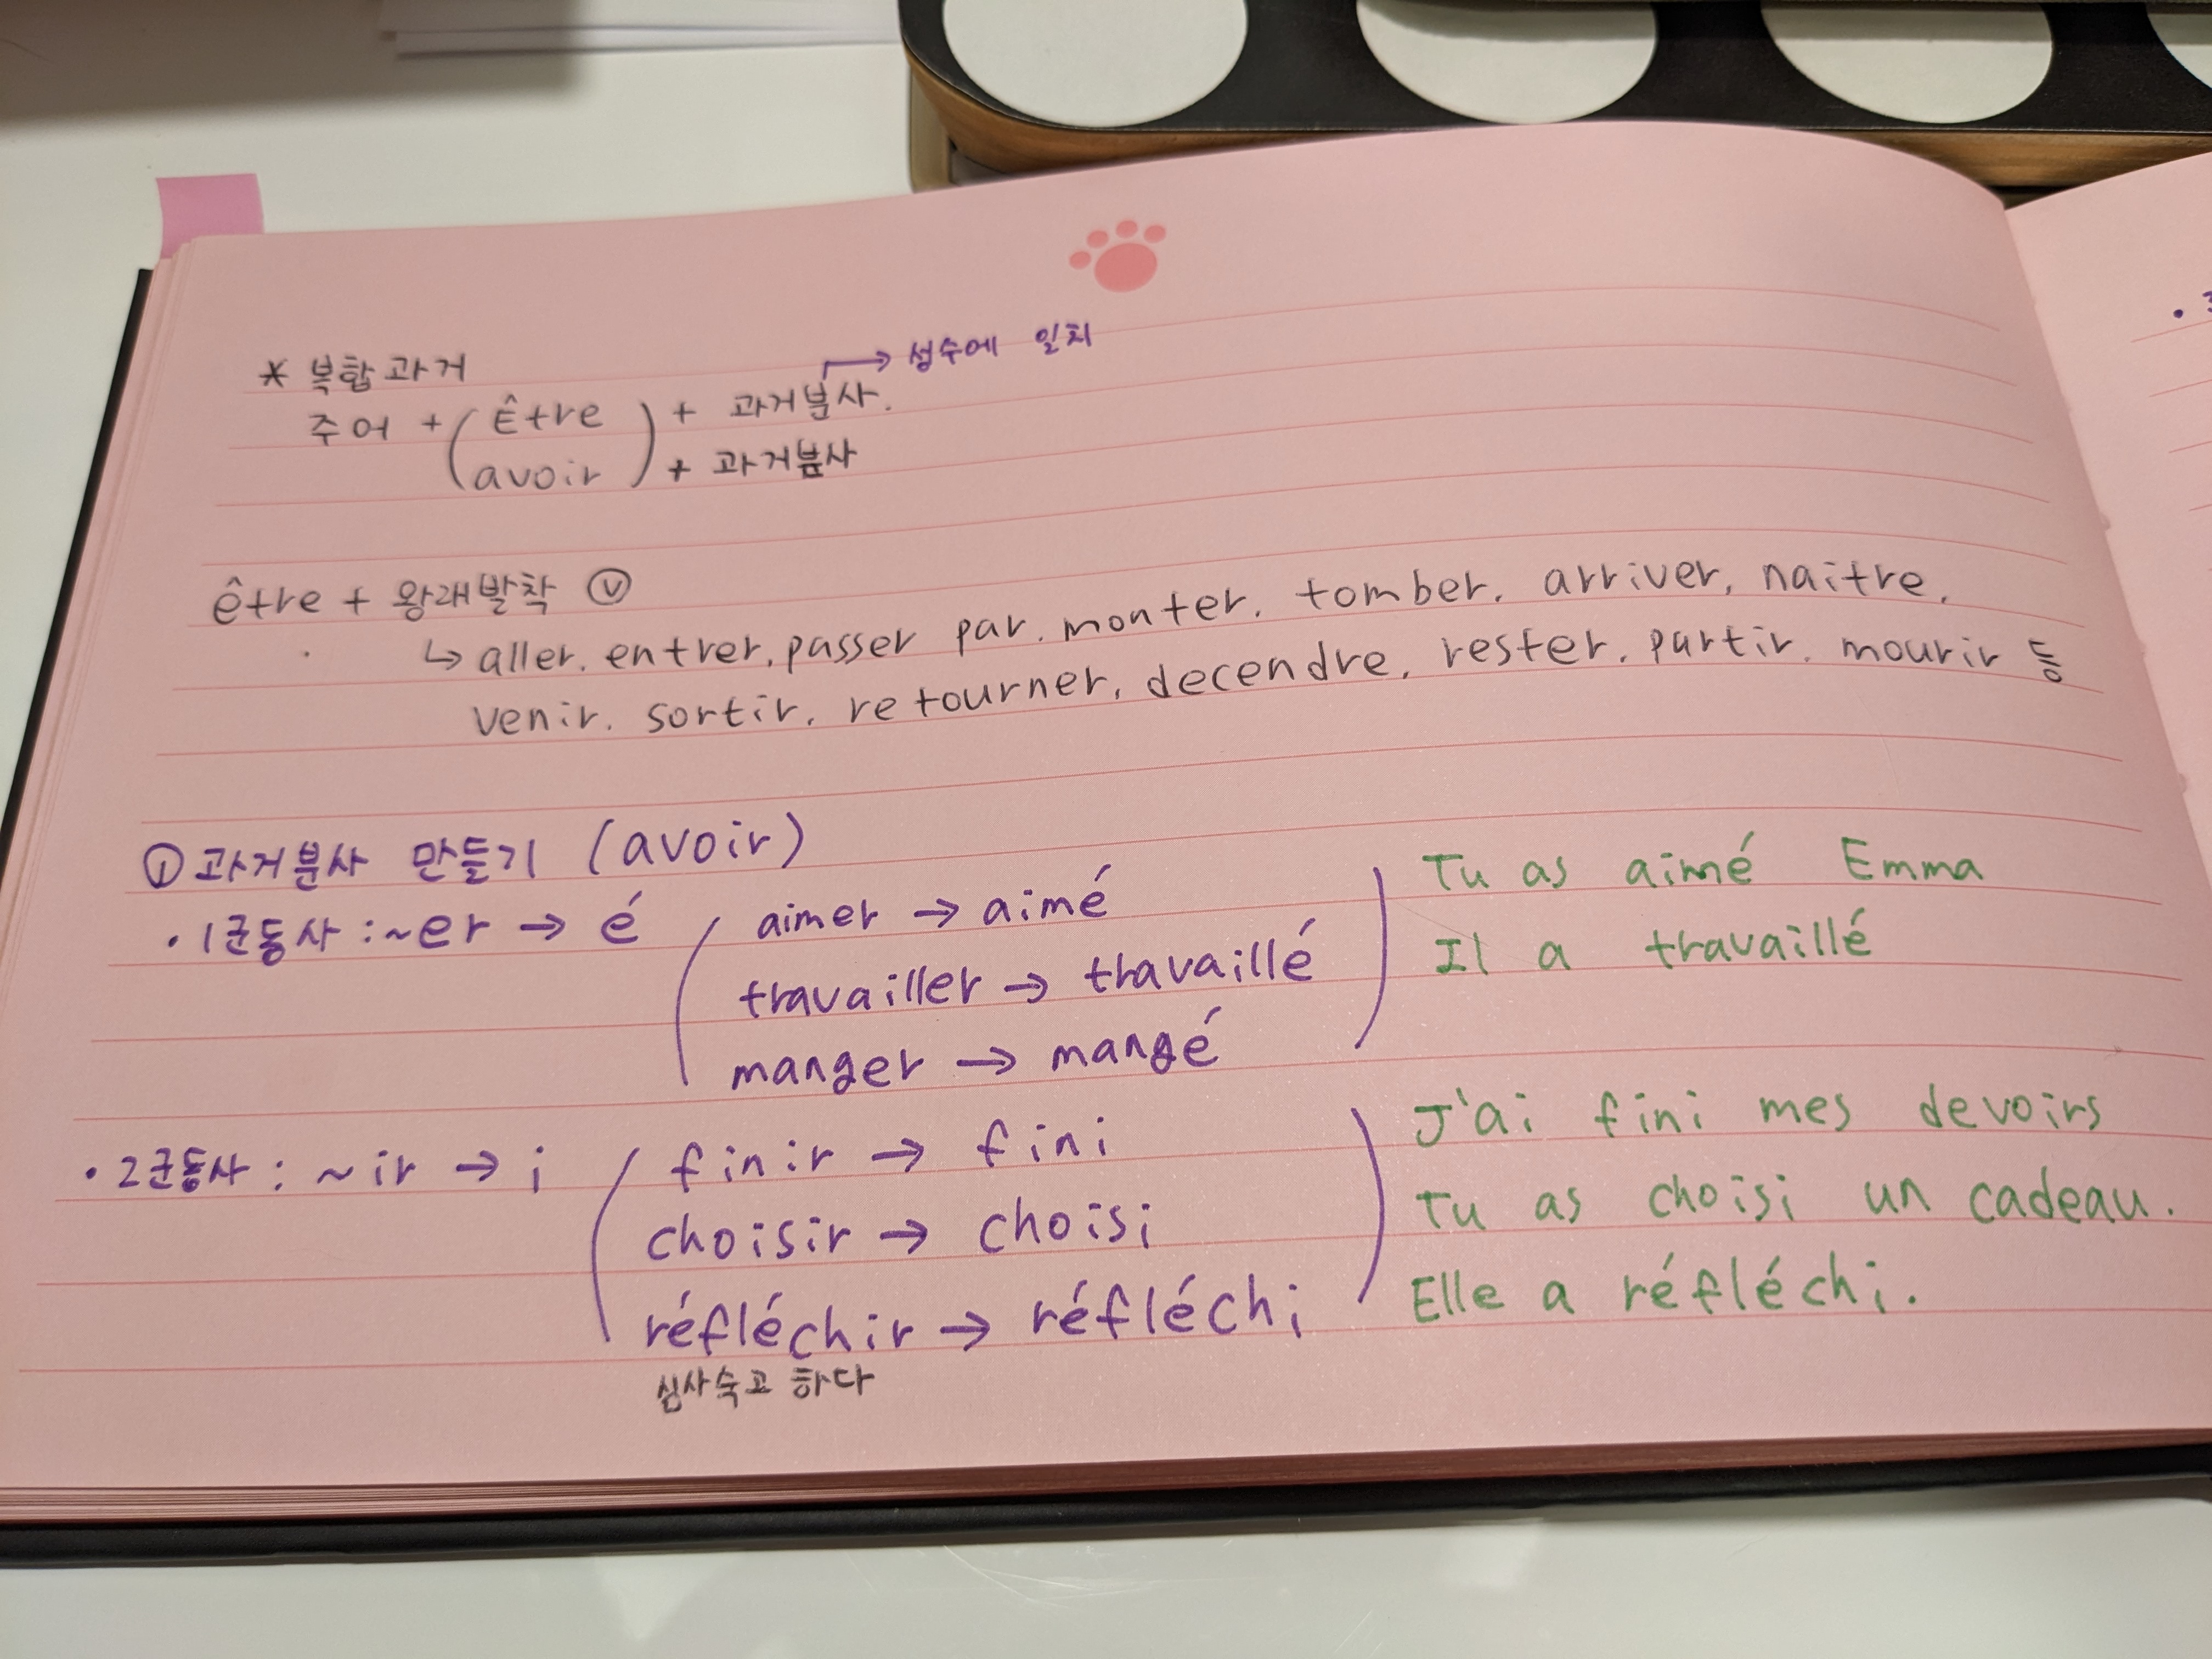 * 복합과거 → 성수에 일치
주어 + ( Être ) + 과거분사.
( avoir ) + 과거분사
être + 왕래발착 ⓥ
↳ aller. entrer. passer par. monter. tomber. arriver, naitre.
venir. sortir. retourner. decendre. rester. partir. mourir 등
① 과거분사 만들기 (avoir)
• 1군동사 : ~er → é ( aimer → aimé ) Tu as aimé Emma
travailler → travaillé Il a travaillé
manger → mangé
• 2군동사 : ~ir → i ( finir → fini ) J'ai fini mes devoirs
choisir → choisi Tu as choisi un cadeau.
réfléchir → réfléchi Elle a réfléchi.
심사숙고 하다